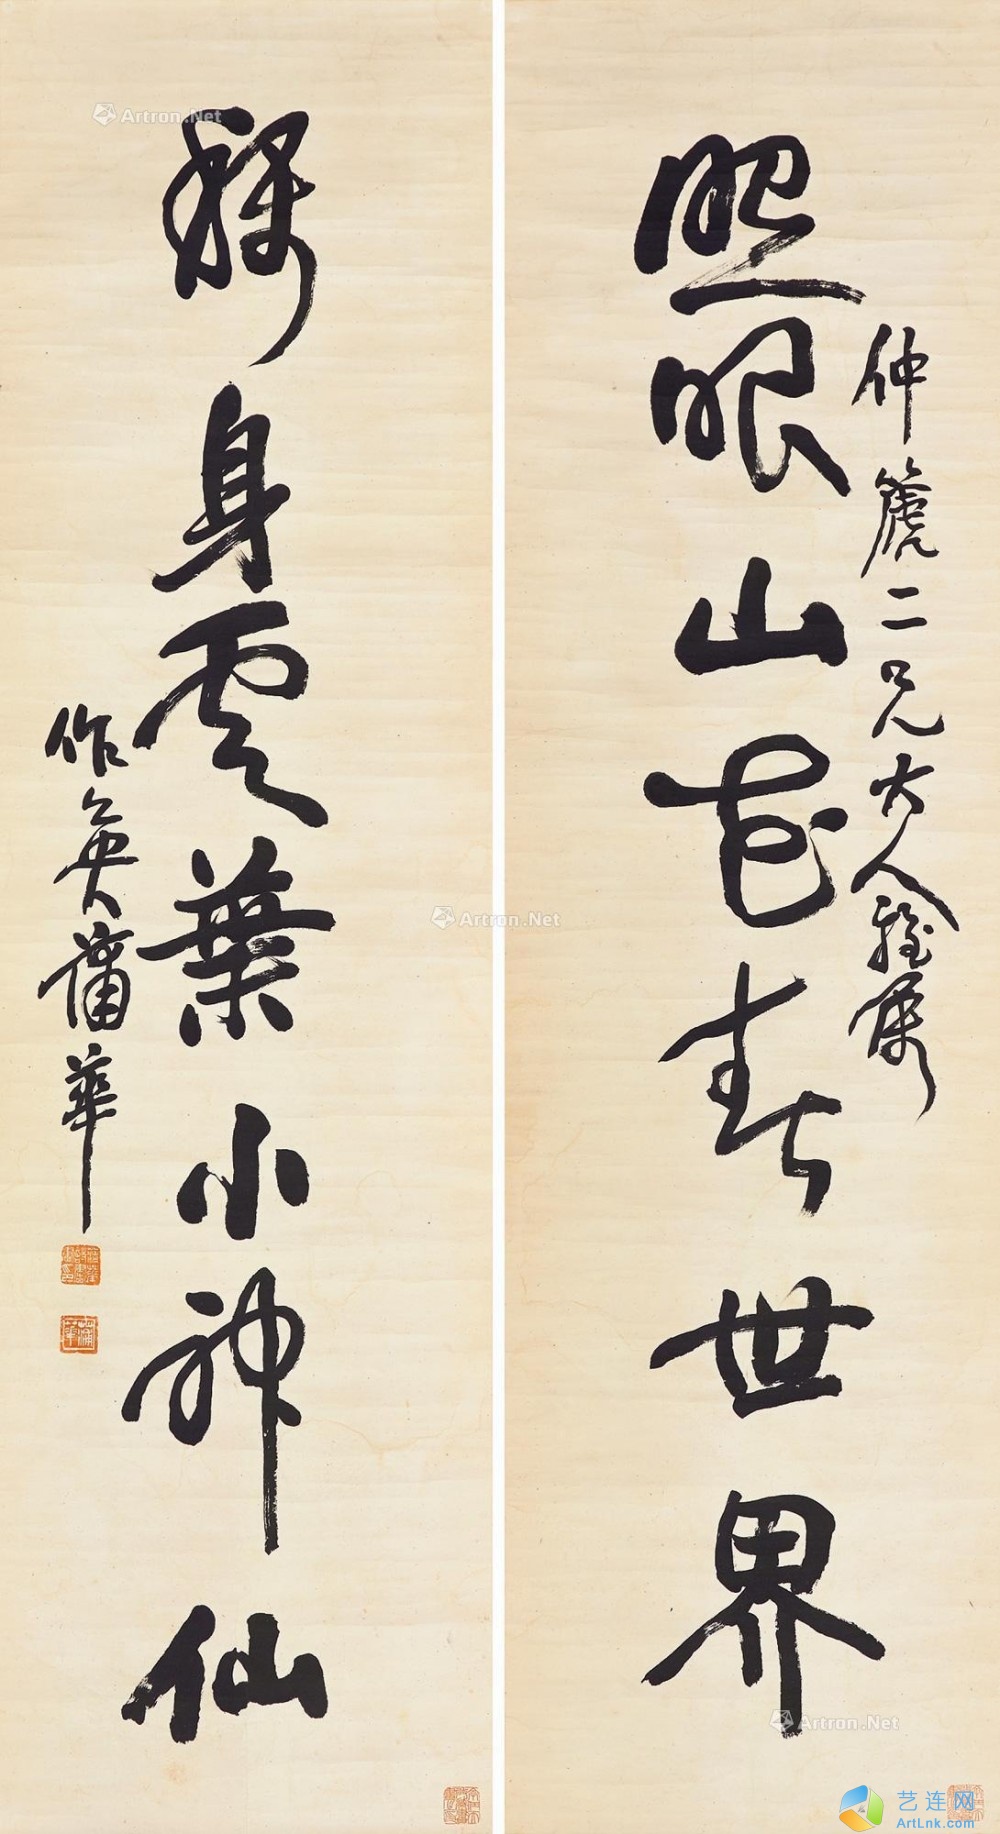 照眼山花春世界
仲篪二兄大人雅屬
稱身雲葉小神仙
作英蒲華
蒲華
Artron.Net
Artron.Net
Artron.Net
艺连网
ArtLnk.com